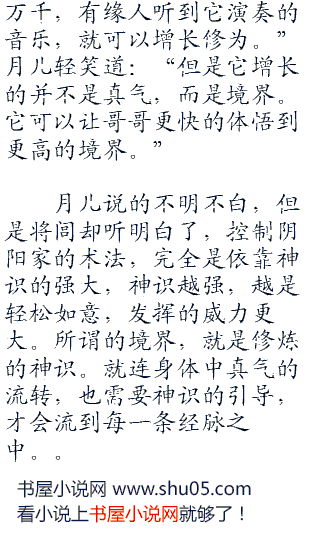 万千，有缘人听到它演奏的
音乐，就可以增长修为。”
月儿轻笑道：“但是它增长
的并不是真气，而是境界。
它可以让哥哥更快的体悟到
更高的境界。”
月儿说的不明不白，但
是将闾却听明白了，控制阴
阳家的术法，完全是依靠神
识的强大，神识越强，越是
轻松如意，发挥的威力更
大。所谓的境界，就是修炼
的神识。就连身体中真气的
流转，也需要神识的引导，
才会流到每一条经脉之
中。。
书屋小说网 www.shu05.com
看小说上书屋小说网就够了！